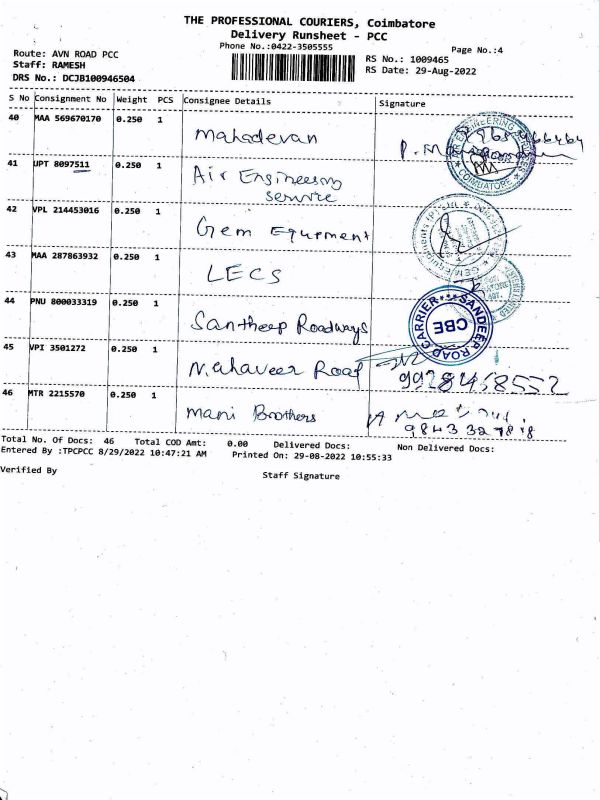 THE PROFESSIONAL COURIERS, Coimbatore
Delivery Runsheet - PCC
Phone No.:0422-3505555
Page No.:4
Route: AVN ROAD PCC
RS No.: 1009465
Staff: RAMESH
RS Date: 29-Aug-2022
DRS No.: DCJB100946504
S No Consignment No Weight PCS Consignee Details Signature
40 MAA 569670170 0.250 1 Mahadevan
41 UPT 8097511 0.250 1 Air Engineering
Service
42 VPL 214453016 0.250 1 Gem Equpment
43 MAA 287863932 0.250 1 LECS
44 PNU 800033319 0.250 1 Santheep Roadways
SANDEER ROAD CARRIER
CBE
45 VPI 3501272 0.250 1 Roof
9928458552
46 MTR 2215570 0.250 1 Mani Brothers
Total No. Of Docs: 46 Total COD Amt: 0.00 Delivered Docs: Non Delivered Docs:
Entered By :TPCPCC 8/29/2022 10:47:21 AM Printed On: 29-08-2022 10:55:33
Verified By Staff Signature